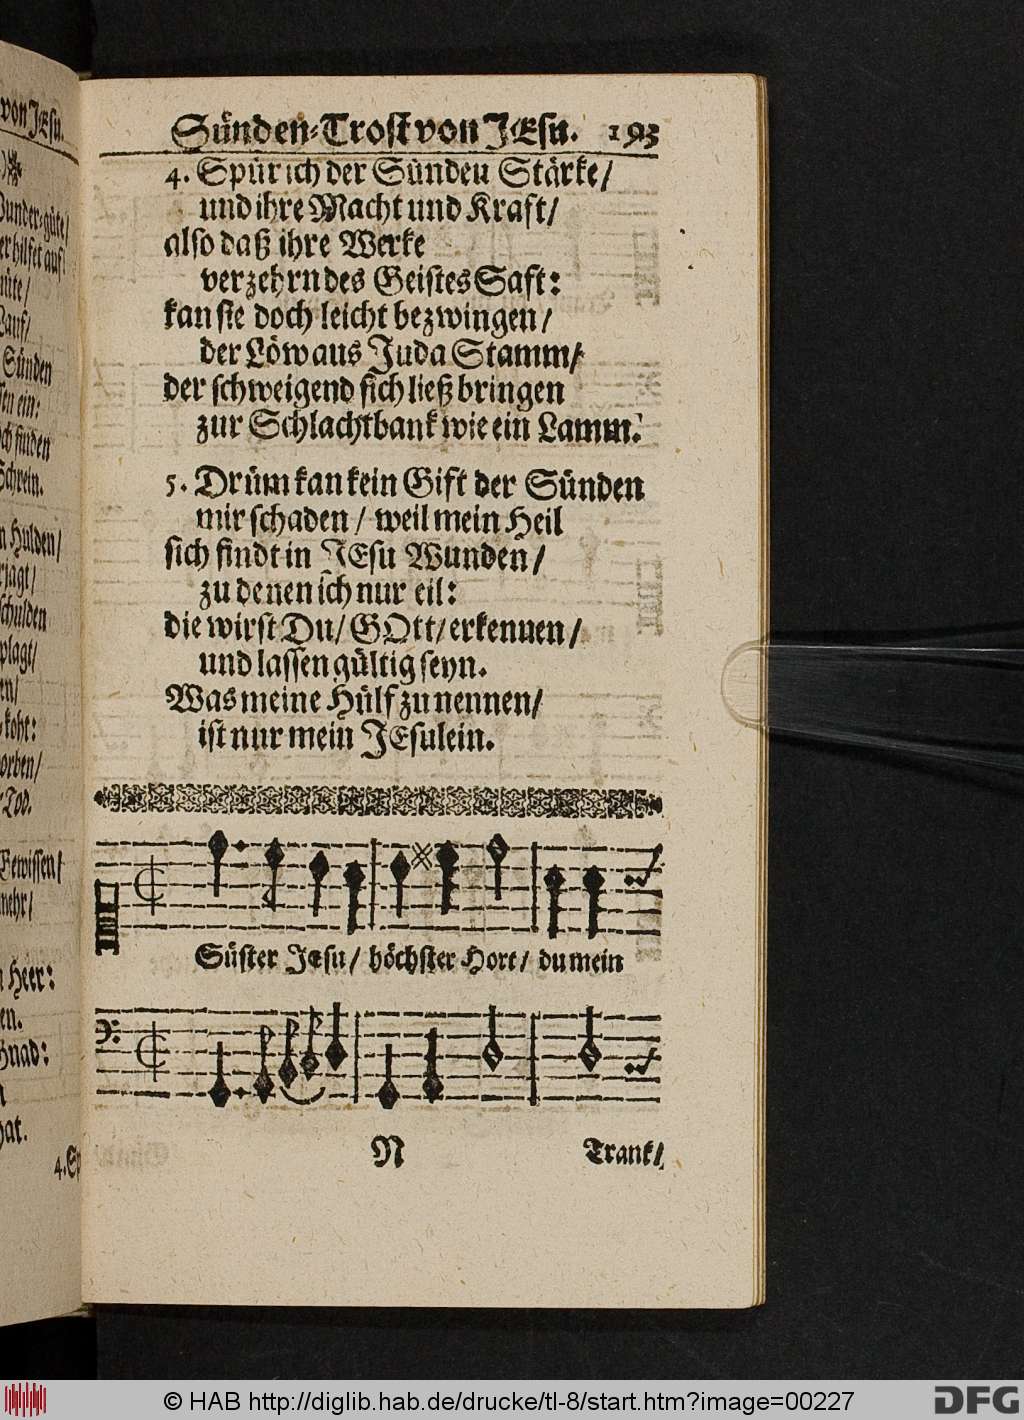 von JEsu.
Sünden-Trost von JEsu. 193
4. Spür ich der Sünden Stärke/
und ihre Macht und Kraft/
also daß ihre Werke
verzehrn des Geistes Saft:
kan sie doch leicht bezwingen/
der Löw aus Juda Stamm/
der schweigend sich ließ bringen
zur Schlachtbank wie ein Lamm.
5. Drüm kan kein Gift der Sünden
mir schaden/ weil mein Heil
sich findt in JEsu Wunden/
zu denen ich nur eil:
die wirst Du/ GOtt/ erkennen/
und lassen gültig seyn.
Was meine Hülf zu nennen/
ist nur mein JEsulein.
Süster Jesu/ höchster Hort/ du mein
N Trank/
© HAB http://diglib.hab.de/drucke/tl-8/start.htm?image=00227
DFG